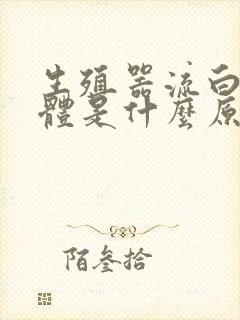 生殖器流白
體是什麼原
陌叄拾